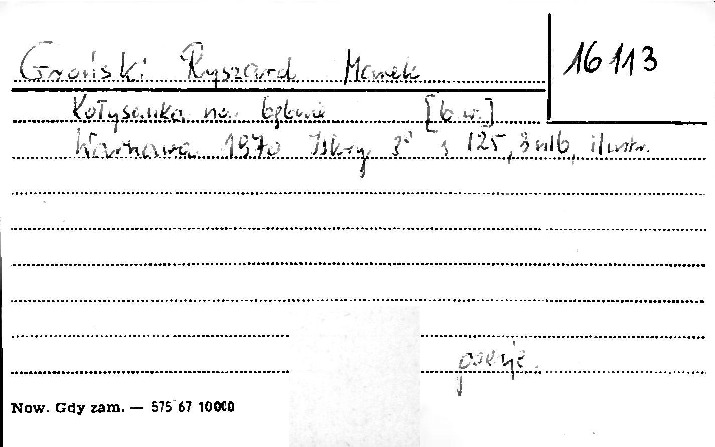 16113
Groński Ryszard Marek
Kołysanka na bębnie [b.w.]
Warszawa 1970 Iskry 8° s 125, 3 nlb, ilustr.
poezje.
Now. Gdy zam. — 575 67 10000